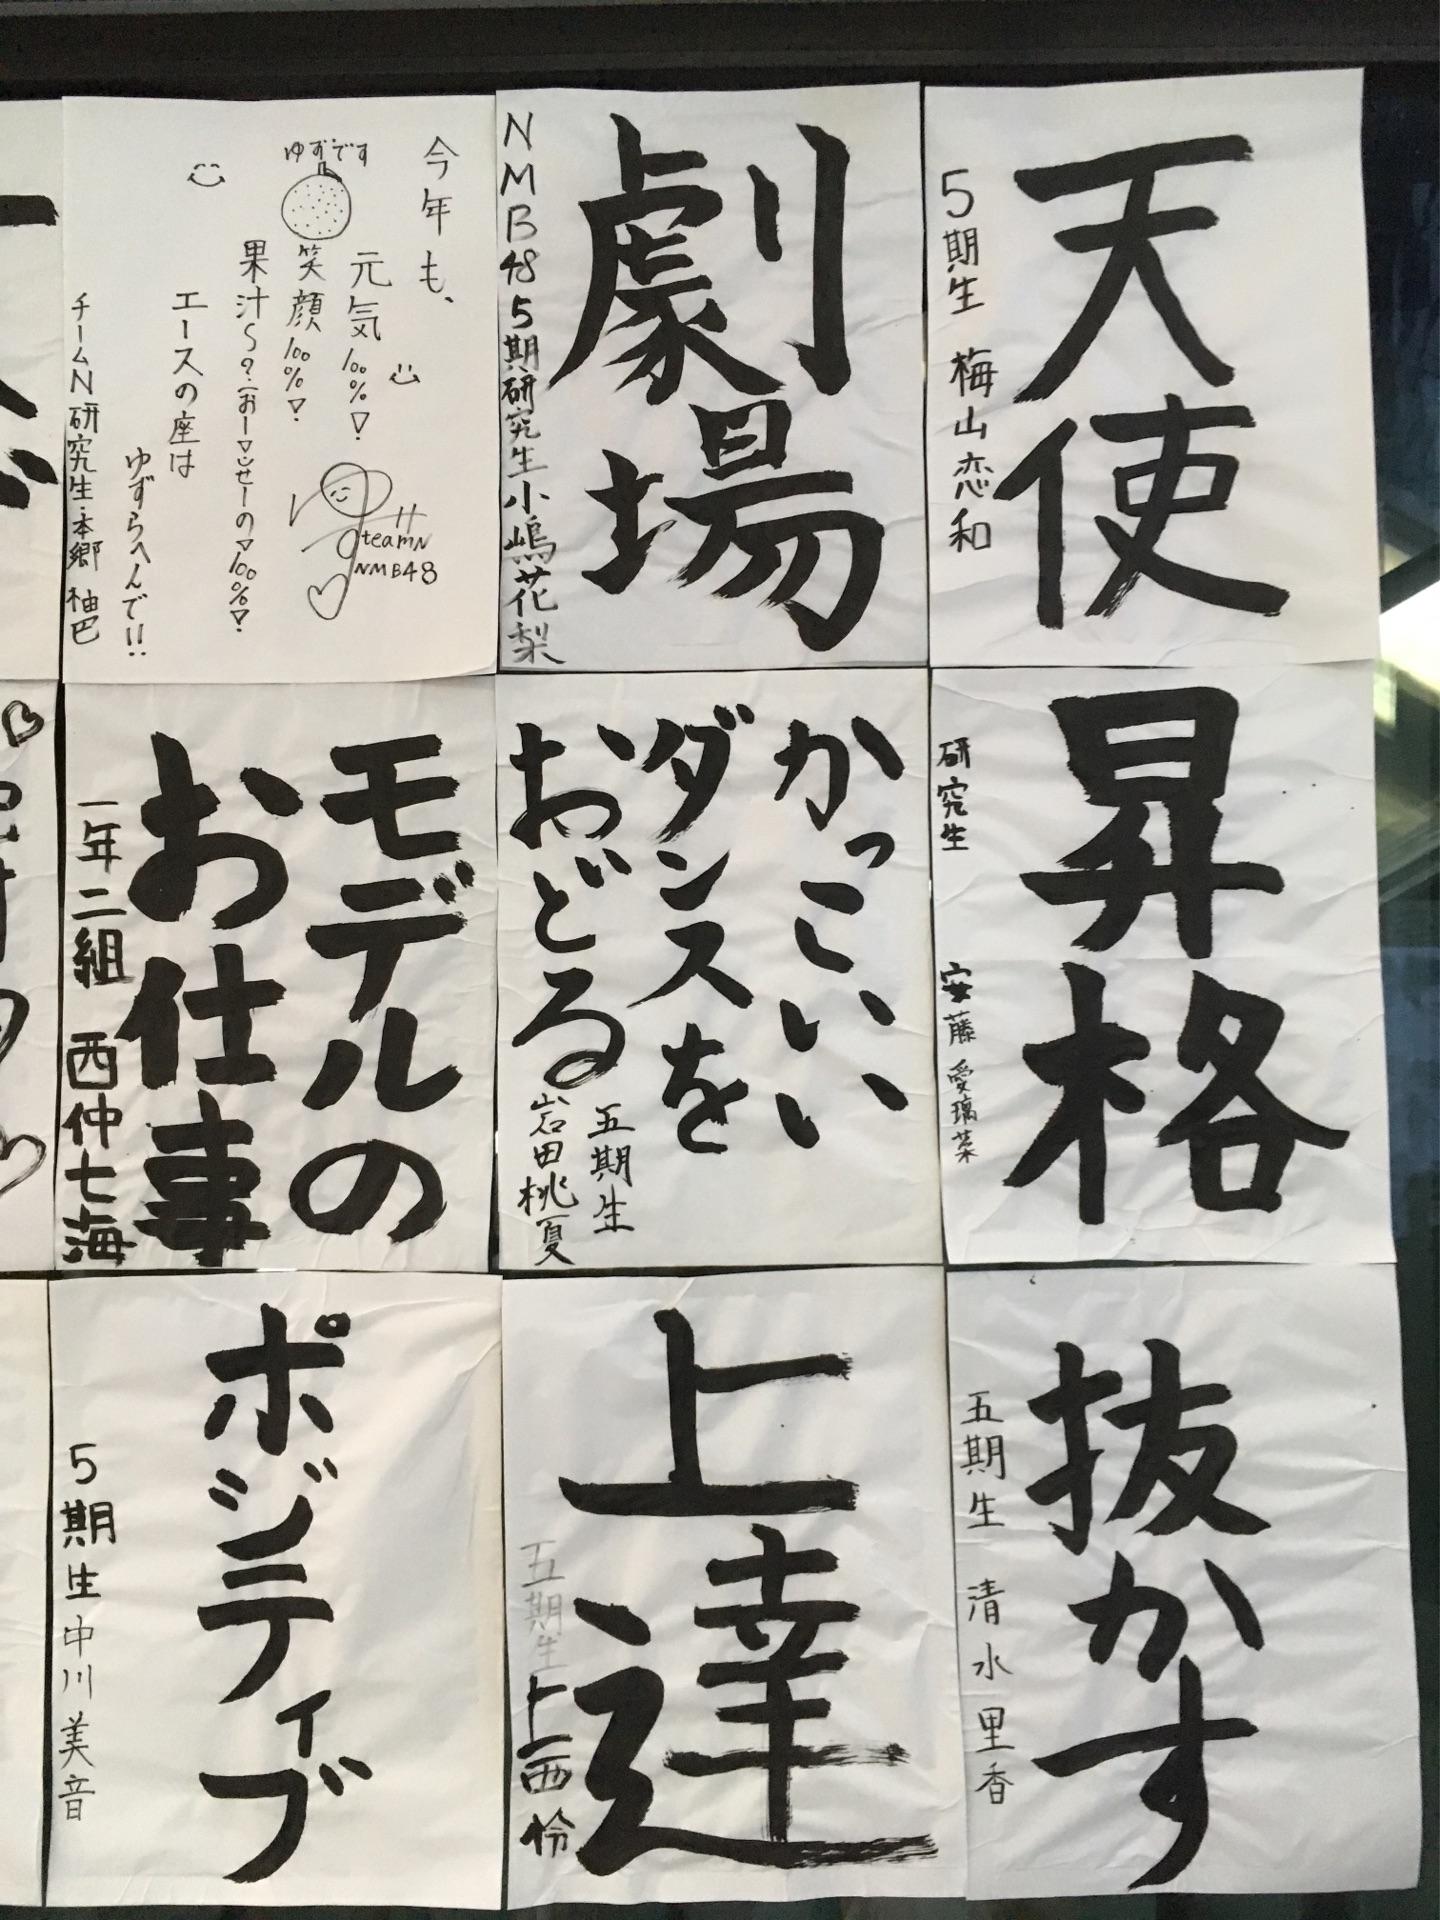 天使
5期生 梅山恋和
劇場
NMB48 5期研究生 小嶋花梨
今年も、
元気100%!
ゆずです
笑顔100%!
果汁〜?(おーっせーの)100%!
エースの座は
ゆずらへんで!!
チームN研究生・本郷柚巴
teamN
NMB48
昇格
研究生 安藤愛璃菜
かっこいい
ダンスを
おどる
五期生
岩田桃夏
モデルの
お仕事
一年二組 西仲七海
抜かす
五期生 清水里香
上達
五期生 上西怜
ポジティブ
5期生 中川美音